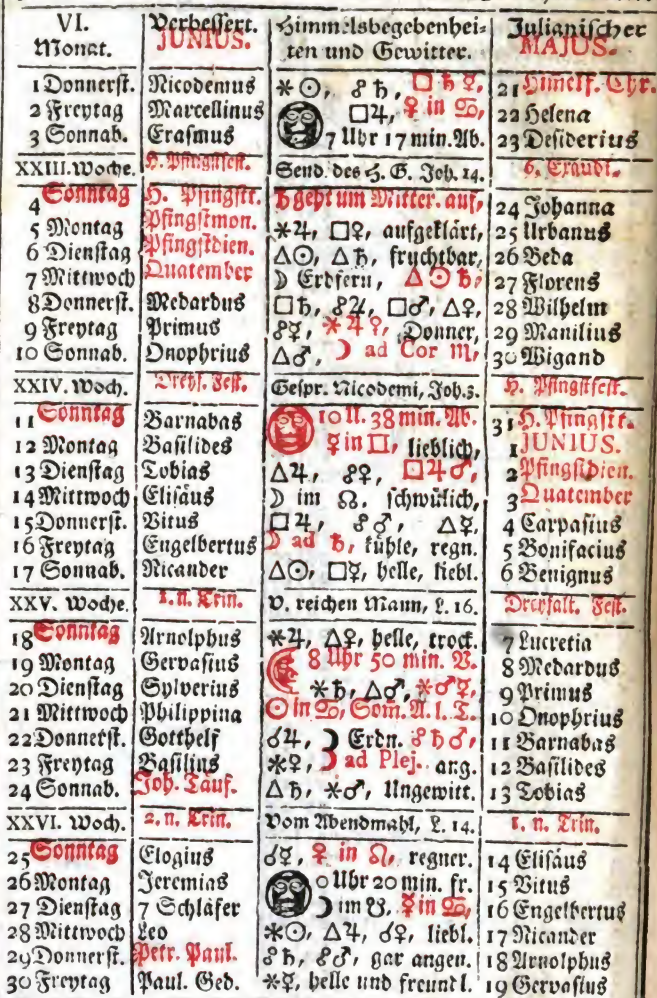 VI. Verbessert. Himmelsbegebenhei= Julianischer
Monat. JUNIUS. ten und Gewitter. MAJUS.
1 Donnerst. Nicodemus ⚹☉, ☍♄, □♄☿, 21 Himelf. Chr.
2 Freytag Marcellinus □♃, ♀ in ♋, 22 Helena
3 Sonnab. Erasmus 7 Uhr 17 min. Ab. 23 Desiderius
XXIII. Woche. H. Pfingstfest. Send. des H. G. Joh. 14. 6. Exaudi.
4 Sonntag H. Pfingstt. ♄ geht um Mitter. auf, 24 Johanna
5 Montag Pfingstmon. ⚹♃, □♀, aufgeklärt, 25 Urbanus
6 Dienstag Pfingstdien. △☉, △♄, fruchtbar, 26 Beda
7 Mittwoch Quatember ☽ Erdfern, △☉♄, 27 Florens
8 Donnerst. Medardus □♄, ☍♃, □♂, △♀, 28 Wilhelm
9 Freytag Primus ☍☿, ⚹♃♀, Donner, 29 Manilius
10 Sonnab. Onophrius △♂, ☽ ad Cor ♏, 30 Wigand
XXIV. Woch. Dreyf. Fest. Gespr. Nicodemi, Joh. 3. H. Pfingstfest.
11 Sonntag Barnabas 10 U. 38 min. Ab. 31 H. Pfingstt.
12 Montag Basilides ☿ in ♊, lieblich, 1 JUNIUS.
13 Dienstag Tobias △♃, ☍♀, □♃♂, 2 Pfingstdien.
14 Mittwoch Elisäus ☽ im ☊, schwülich, 3 Quatember
15 Donnerst. Vitus □♃, ☍♂, △☿, 4 Carpasius
16 Freytag Engelbertus ☽ ad ♄, kühle, regn. 5 Bonifacius
17 Sonnab. Nicander △☉, □☿, helle, liebl. 6 Benignus
XXV. Woche. 1. n. Trin. V. reichen Mann, L. 16. Dreyfalt. Fest.
18 Sonntag Arnolphus ⚹♃, △♀, helle, trock. 7 Lucretia
19 Montag Gervasius 8 Uhr 50 min. V. 8 Medardus
20 Dienstag Sylverius ⚹♄, △♂, ⚹♂☿, 9 Primus
21 Mittwoch Philippina ☉ in ♋, Som. A. l. T. 10 Onophrius
22 Donnerst. Gotthelf ☌♃, ☽ Erdn. ☍♄♂, 11 Barnabas
23 Freytag Basilius ⚹♀, ☽ ad Plej. ang. 12 Basilides
24 Sonnab. Joh. Täuf. △♄, ⚹♂, Ungewitt. 13 Tobias
XXVI. Woch. 2. n. Trin. Vom Abendmahl, L. 14. 1. n. Trin.
25 Sonntag Elogius ☌☿, ♀ in ♌, regner. 14 Elisäus
26 Montag Jeremias 0 Uhr 20 min. fr. 15 Vitus
27 Dienstag 7 Schläfer ☽ im ☋. ☿ in ♋, 16 Engelbertus
28 Mittwoch Leo ⚹☉, △♃, ☌♀, liebl. 17 Nicander
29 Donnerst. Petr. Paul. ☍♄, ☍♂, gar angen. 18 Arnolphus
30 Freytag Paul. Ged. ⚹☿, helle und freundl. 19 Gervasius